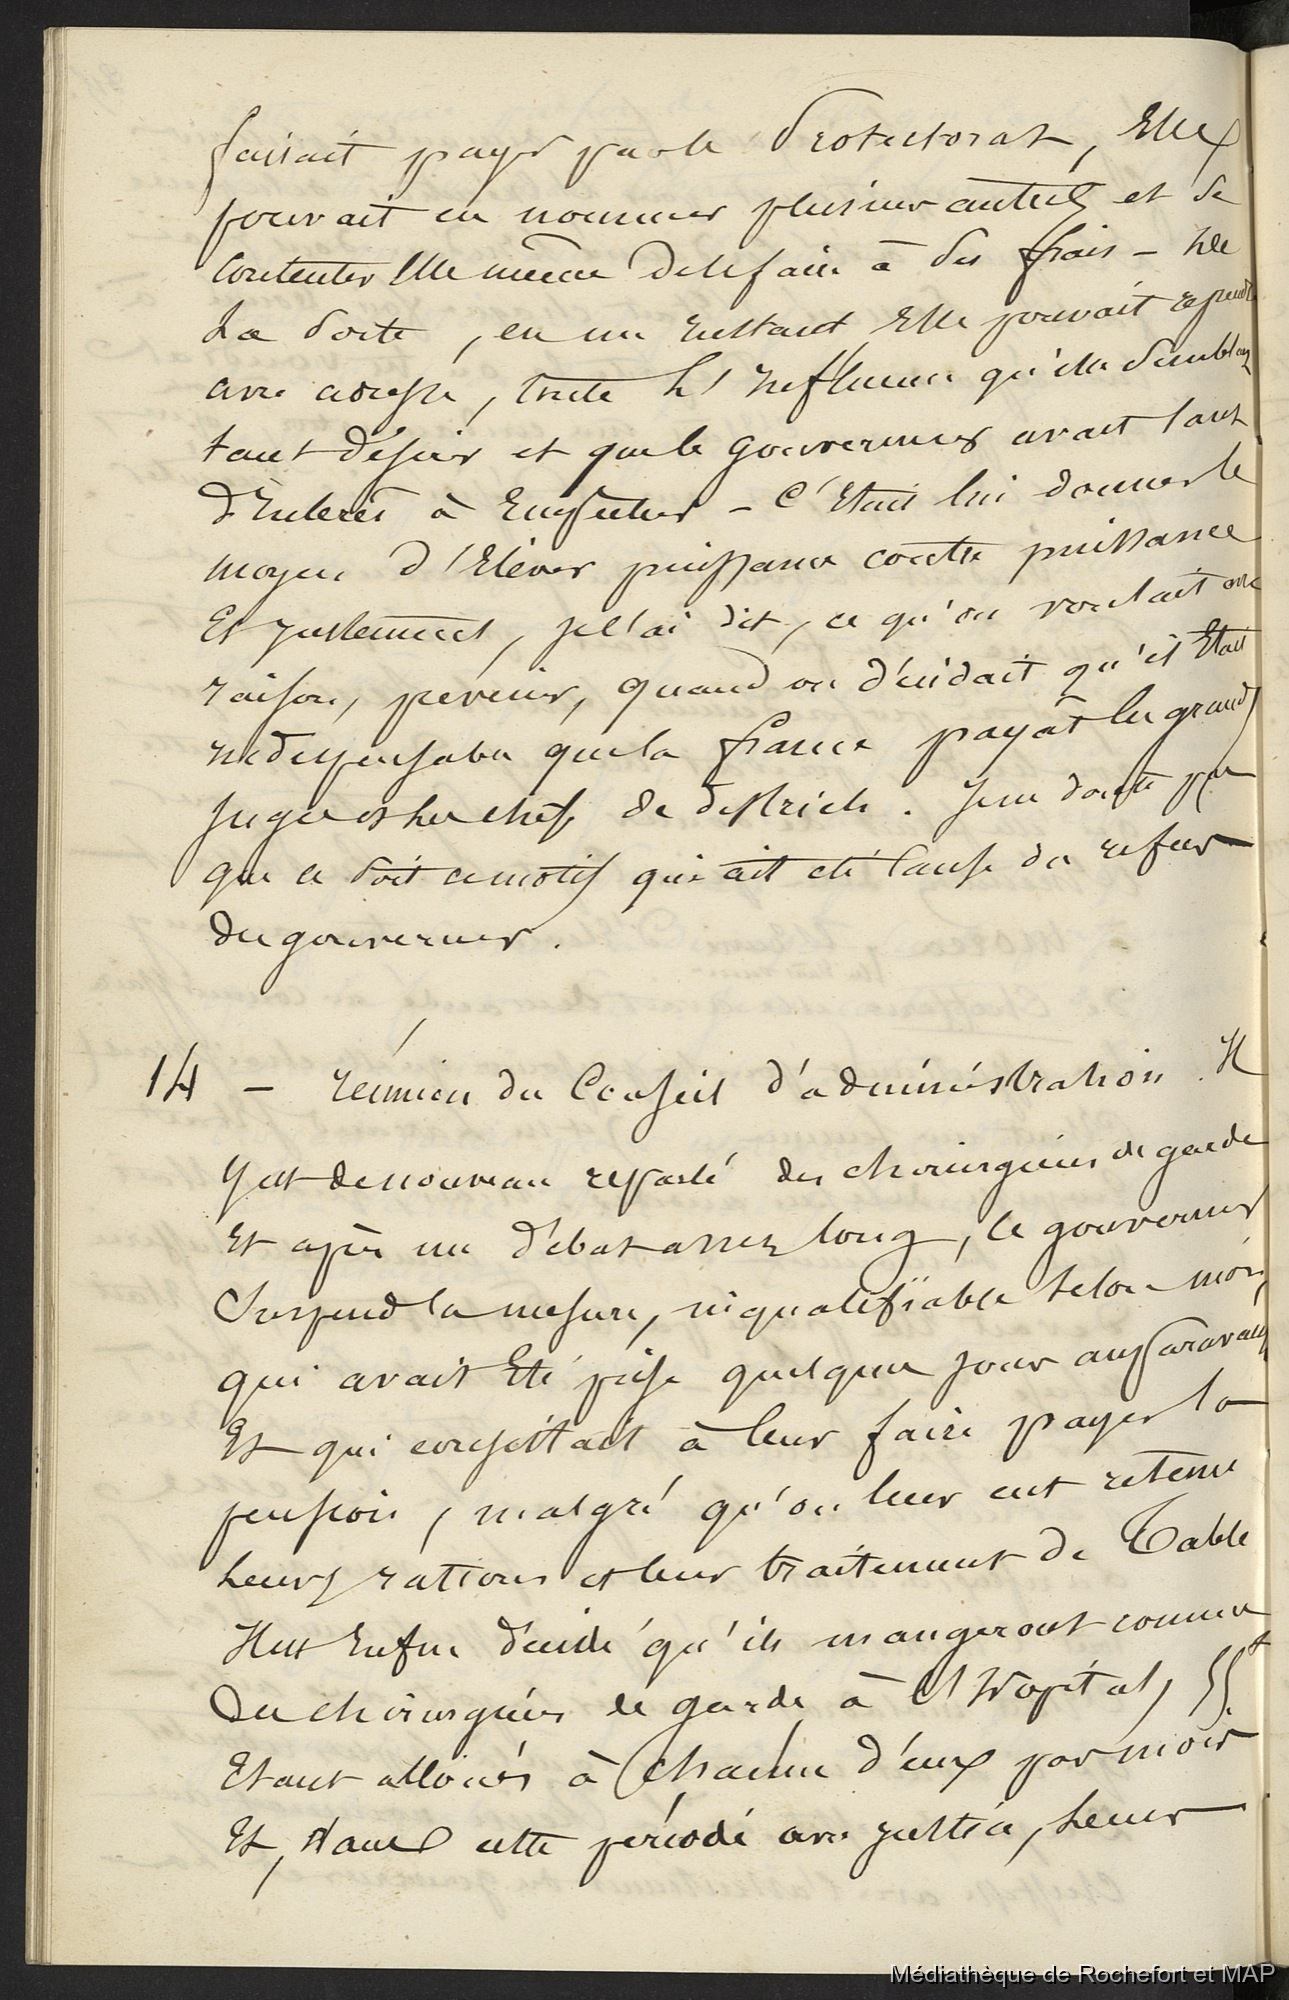 faisait payer par le Protectorat, Elle
pouvait en nommer plusieurs autres et se
contenter Elle même de les faire à ses frais - De
La Sorte, en un Instant, Elle pouvait reprendre
avec adresse, toute L'Influence qu'elle semblait
tant désirer et que le gouverneur avait tant
d'Intérêt à Empêcher - C'Etait lui donner le
moyen d'Elever puissance contre puissance
Et justement, je l'ai dit, ce qu'on voulait avec
raison, prévenir, quand on décidait qu'il Etait
Indispensable que la france payât les grands
juges et les chefs de districts. Je ne doute pas
que ce soit ce motif qui ait été cause du refus
du gouverneur.
14 - réunion du Conseil d'administration. Il
y est de nouveau reparlé des chirurgiens de garde
Et après un débat assez long, le gouverneur
Suspend la mesure, inqualifiable selon moi,
qui avait Eté prise quelques jours auparavant
Et qui consistait à leur faire payer la
pension, malgré qu'on leur eut retenu
Leurs rations et leur traitement de Table
Il est Enfin décidé qu'ils mangeront comme
Les chirurgiens de garde à L'hopital,
Etant alloués à Chacun d'eux par mois
Et, dans cette période avec justice, Leur